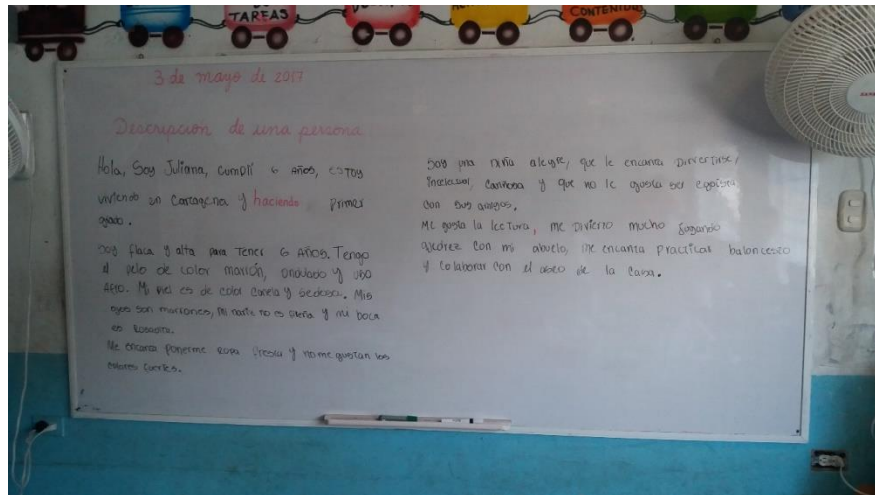 TAREAS
CONTENIDO
3 de mayo de 2017
Descripción de una persona
Hola, Soy Juliana, cumplí 6 años, estoy
viviendo en Cartagena y haciendo primer
grado.
Soy flaca y alta para tener 6 años. Tengo
el pelo de color marrón, ondulado y uso
Mi piel es de color canela y sedosa. Mis
ojos son marrones, mi nariz no es y mi boca
es rosadita.
Me encanta ponerme ropa fresca y no me gustan los
colores fuertes.
Soy una niña alegre, que le encanta divertirse,
cariñosa y que no le gusta ser egoista
con sus amigos.
Me gusta la lectura, me divierto mucho jugando
ajedrez con mi abuelo, me encanta practicar baloncesto
y colaborar con el aseo de la casa.